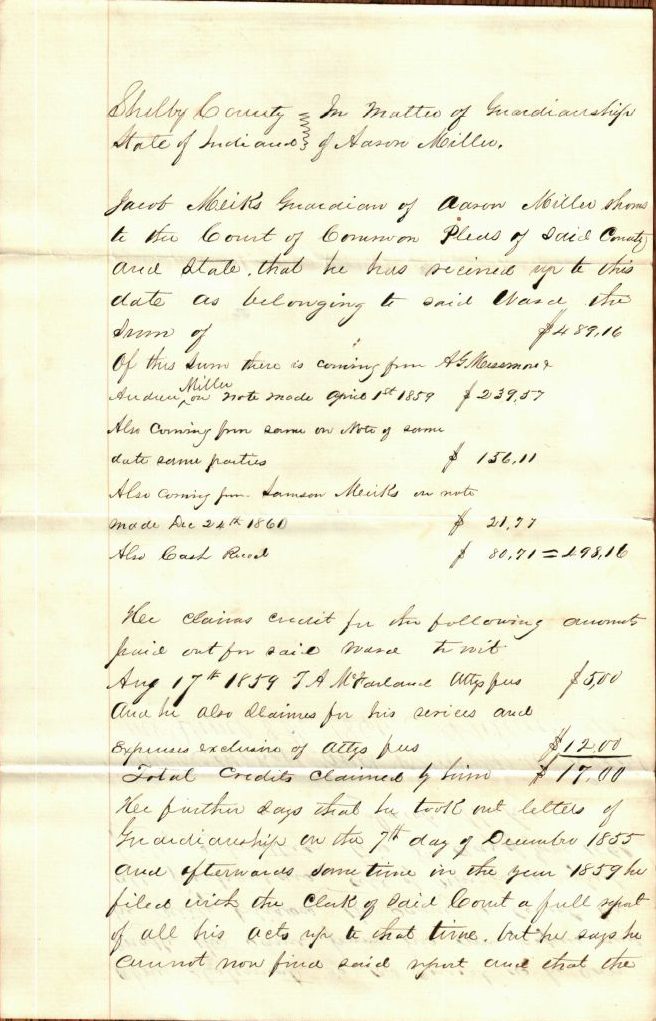 Shelby County } In Matter of Guardianship
State of Indiana } of Aaron Miller.
Jacob Meiks Guardian of Aaron Miller shows
to the Court of Common Pleas of said County
and State, that he has recieved up to this
date as belonging to said Ward the
Sum of $489,16
Of this Sum there is coming from A G Messmore &
Andrew Miller on note made April 1st 1859 $239,57
Also Coming from same on Note of same
date same parties $156,11
Also coming from Samson Meirks on note
made Dec 24th 1860 $21,77
Also Cash Recd $80,71 = 498,16
He claims credit for the following amounts
paid out for said Ward to wit
Aug 17th 1859 T A McFarland Attys fees $5,00
And he also Claimes for his serices and
Expenses exclusive of Attys fees $12.00
Total Credits Claimed by him $17,00
He further says that he took out letters of
Guardianship on the 7th day of December 1855
and afterwards some time in the year 1859 he
filed with the Clerk of said Court a full report
of all his acts up to that time. but he says he
cannot now find said report and that the